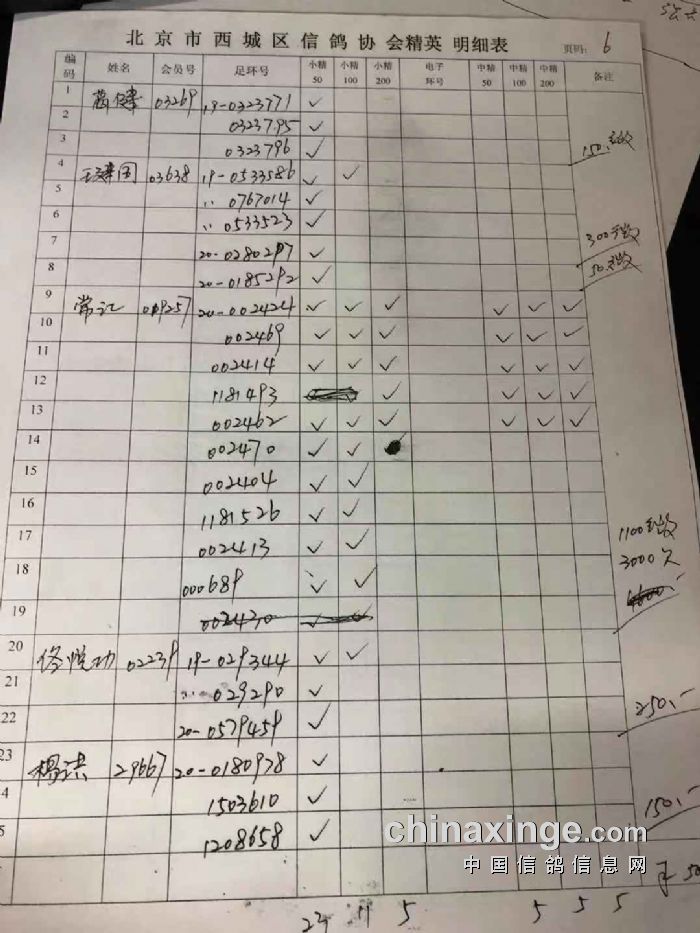 北京市西城区信鸽协会精英 明细表 页码: 6
编码 姓名 会员号 足环号 小精50 小精100 小精200 电子环号 中精50 中精100 中精200 备注
1 03269 19-0323771 ✓
2 0323795 ✓
3 0323796 ✓ 150.
4 王建国 03638 19-0533586 ✓ ✓
5 〃 0767014 ✓
6 〃 0533523 ✓
7 20-0280297 ✓ 300
8 20-0185292 ✓ 50.
9 常江 009257 20-002424 ✓ ✓ ✓ ✓ ✓ ✓
10 002469 ✓ ✓ ✓ ✓ ✓ ✓
11 002414 ✓ ✓ ✓ ✓ ✓ ✓
12 1181493 ✓ ✓ ✓ ✓
13 002462 ✓ ✓ ✓ ✓ ✓ ✓
14 002470 ✓ ✓
15 002404 ✓ ✓
16 1181526 ✓ ✓
17 002413 ✓ ✓ 1100
18 000689 ✓ ✓ 3000欠
19 002430 ✓ ✓
20 佟悦功 02239 19-029344 ✓ ✓
21 〃 029290 ✓
22 20-0579459 ✓ 250.-
23 杨 29667 20-0180978 ✓
4 1503610 ✓
5 1208658 ✓ 150.-
50
11 5 5 5 5
chinaxinge.com
中国信鸽信息网